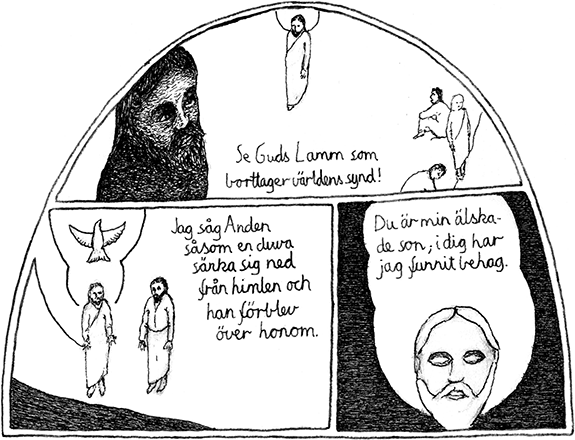 Se Guds Lamm som
borttager världens synd!
Jag såg Anden
såsom en duva
sänka sig ned
från himlen och
han förblev
över honom.
Du är min älska-
de son; i dig har
jag funnit behag.